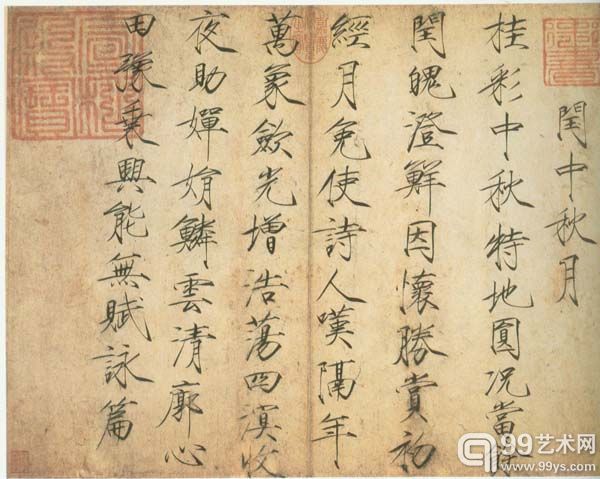 閏中秋月
桂彩中秋特地圓况當餘
閏魄澄鮮因懷勝賞初
經月免使詩人嘆隔年
萬象歛光增浩蕩四溟收
夜助嬋娟鱗雲清廓心
田豫乘興能無賦詠篇
99艺术网
www.99ys.com